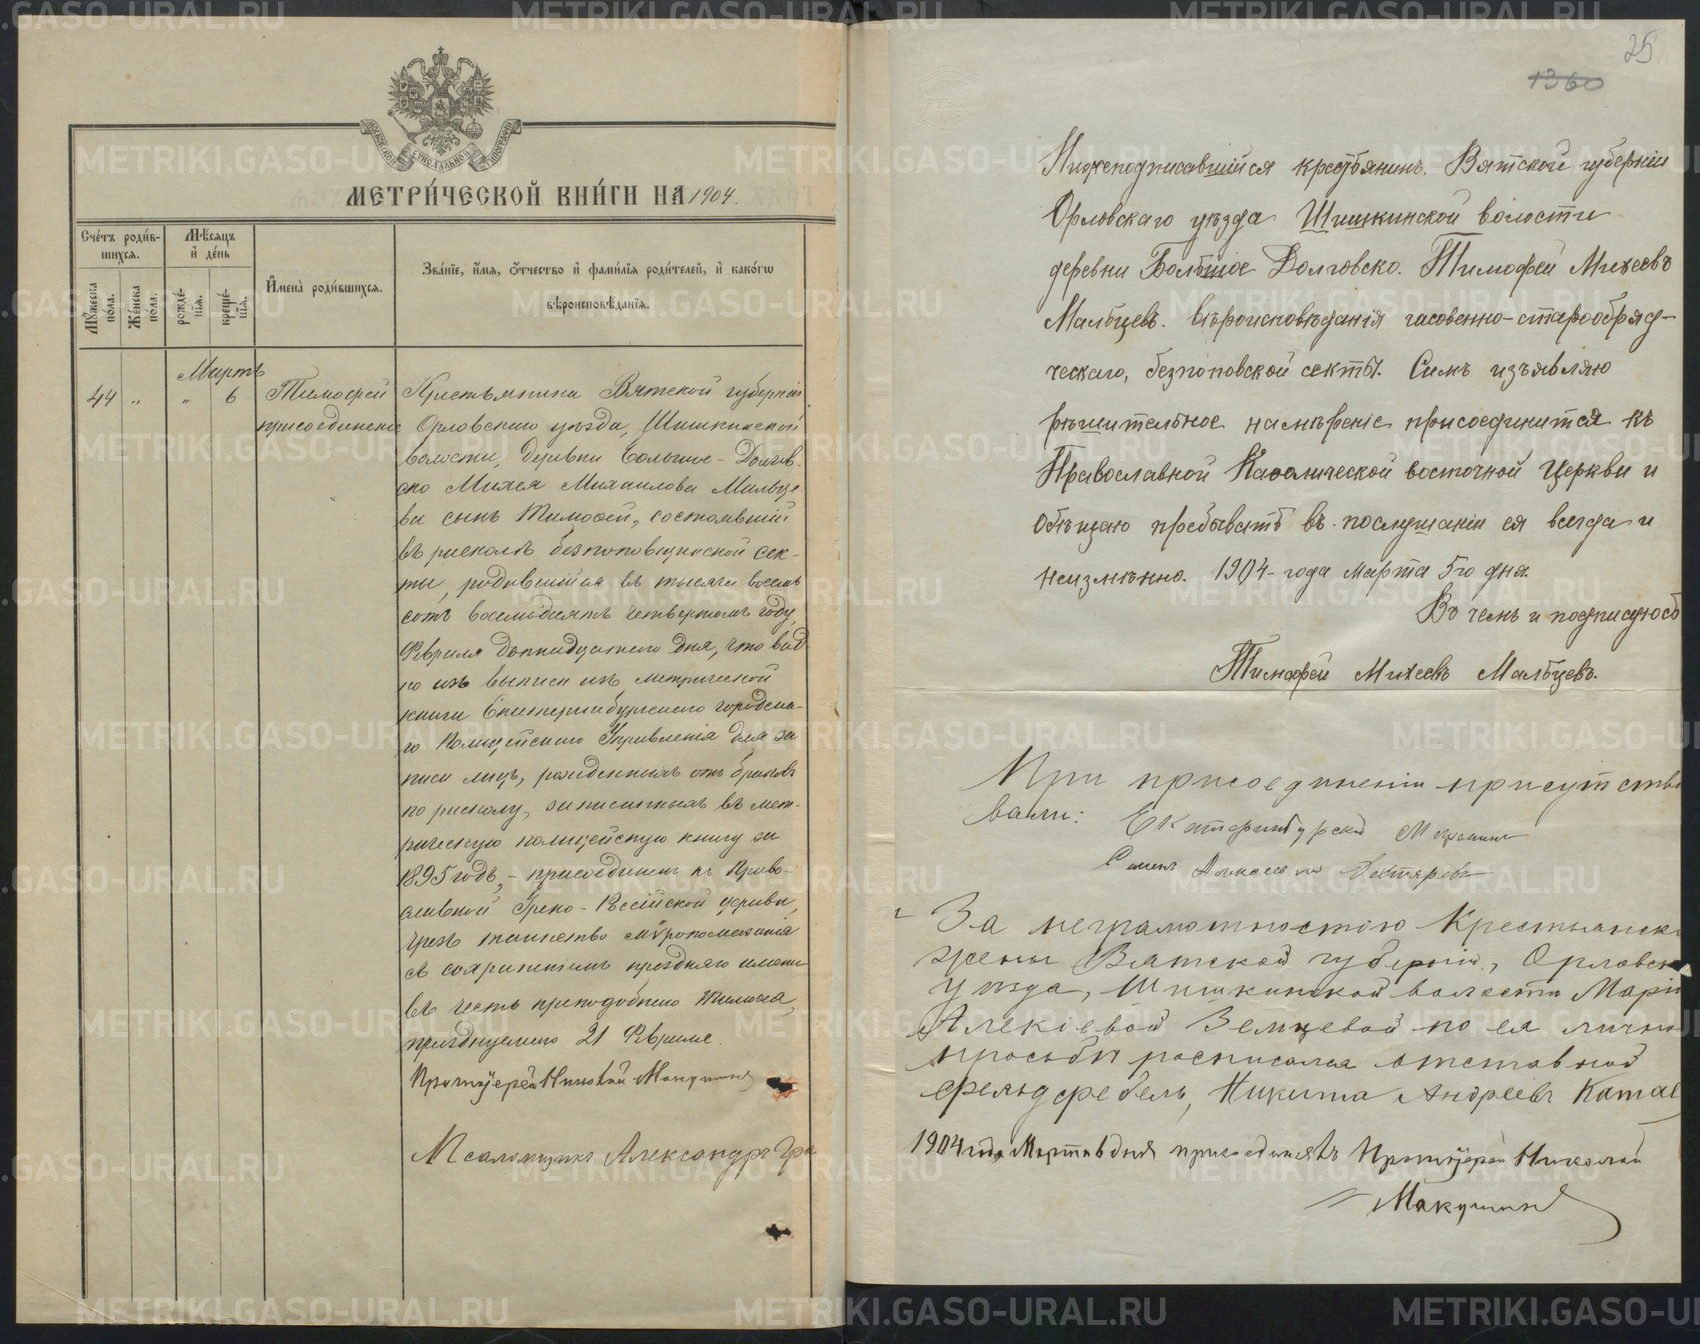 МЕТРИ́ЧЕСКОЙ КНИ́ГИ НА 1904.
Сче́тъ роди́в-
шихся.
Мѣ́сяцъ
и де́нь
Му́жеска
по́ла.
Же́нска
по́ла.
рожде́-
нїя.
креще́-
нїя.
И҆мена̀ роди́вшихся.
Зва́нїе, и҆́мя, ѻ҆́тчество и҆ фами́лїя роди́телей, и҆ како́гѡ
вѣроисповѣ́данїя.
Мартъ
44 " " 6
Тимоѳей
присоединеніе
Крестьянина Вятской губерніи
Орловскаго уѣзда, Шишкинской
волости, деревни Большое-Долгов-
ско Михея Михаилова Мальце
ва сынъ Тимоѳей, состоявшій
въ расколѣ безпоповщинской сек-
ты, родившійся въ тысяча восемь
сотъ восемьдесятъ четвертомъ году,
Февраля двѣнадцатаго дня, что вид
но изъ выписи изъ метрической
книги Екатеринбургскаго городска-
го Полицейскаго Управленія для за
писи лицъ, рожденныхъ отъ браковъ
по расколу, записанныхъ въ мет-
рическую полицейскую книгу за
1895 годъ, - присоединенъ къ Право-
славной Греко-Россійской церкви,
чрезъ таинство мѵропомазанія
съ сохраненіемъ прежняго имени
въ честь преподобнаго Тимоѳея,
празднуемаго 21 Февраля.
Протоіерей Николай Макушинъ
Псаломщикъ Александръ
25
1360
Нижеподписавшійся крестьянинъ. Вятской губерніи
Орловскаго уѣзда Шишкинской волости
деревни Большое Долговско. Тимофей Михеевъ
Мальцевъ. вѣроисповѣданія часовенно-старообряд-
ческаго, безпоповской секты. Симъ изъявляю
рѣшительное намѣреніе присоединится къ
Православной Каѳолической восточной Церкви и
обѣщаю пребывать въ послушаніи ея всегда и
неизмѣнно. 1904-года марта 5го дня.
Въ чемъ и подписуюсь
Тимофей Михеевъ Мальцевъ.
При присоединеніи присутство
вали: Екатеринбурской Мещанинъ
Семенъ Алексеевъ Дехтяревъ
За неграмотностію Крестьянско
жены Вятской губерніи, Орловско
уѣзда, Шишкинской валасти Маріи
Алексіевой Земцевой по ея лично
просьби росписался отставной
фельдфебель, Никита Андреевъ Катае
1904 года Марта 6 дня присоединялъ Протоіерей Николай
Макушинъ
METRIKI.GASO-URAL.RU